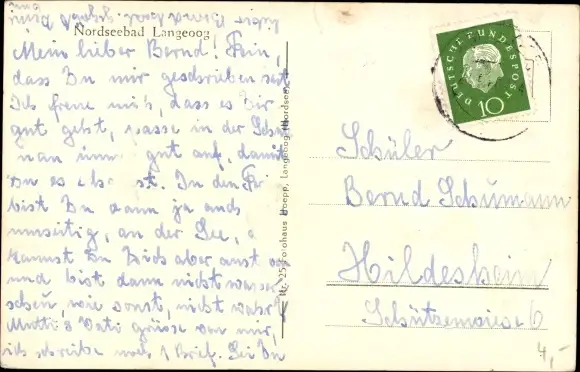 Nordseebad Langeoog
Mein lieber Bernd! Fein,
dass Du mir geschrieben hast.
Ich freue mich, dass es Dir
gut geht, passe in der Schule
man immer gut auf, damit
Du es
bist Du dann ja auch
an der See,
kannst Du Dich aber
und bist dann nicht wasser
scheu, wie sonst, nicht wahr?
Mutti & Vati grüsse von mir,
ich schreibe noch 1 Brief. Sei Du
Nr. 25 Fotohaus Hoepp, Langeoog (Nordsee)
DEUTSCHE BUNDESPOST
10
Schüler
Bernd Schumann
Hildesheim
Schützenwiese 6
4,-